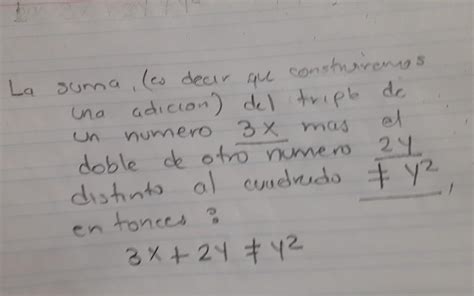 La suma, (es decir que construiremos
una adicion) del triple de
un numero 3x mas el
doble de otro numero 2y
distinto al cuadrado ≠ y²,
entonces?
3x + 2y ≠ y²